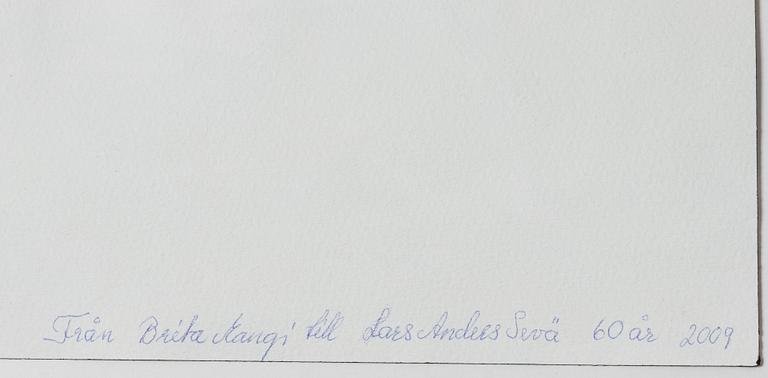 Från Brita Nangi till Lars Anders Sevä 60 år 2009